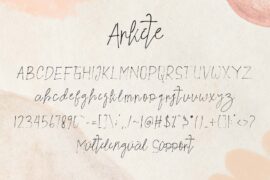 Ankicte
ABCDEFGHIJKLMNOPQRSTUVWXYZ
abcdefghijklmnopqrstuvwxyz
1234567890
Multilingual Support